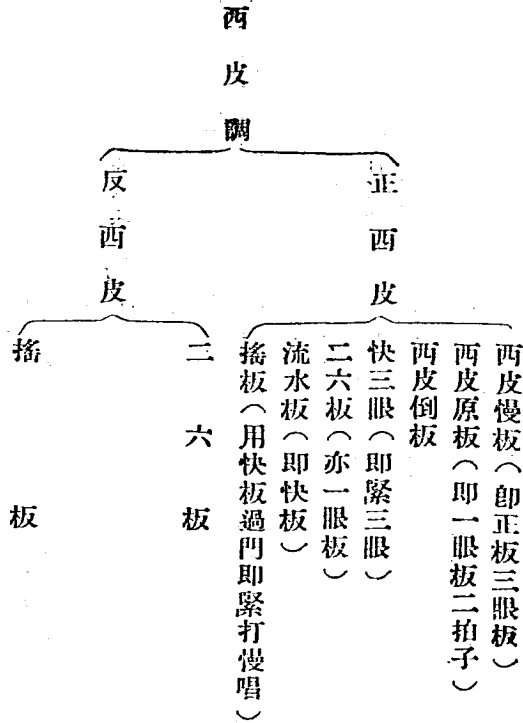 西皮調
正西皮
西皮慢板（卽正板三眼板）
西皮原板（即一眼板二拍子）
西皮倒板
快三眼（即緊三眼）
二六板（亦一眼板）
流水板（即快板）
搖板（用快板過門即緊打慢唱）
反西皮
二六板
搖板